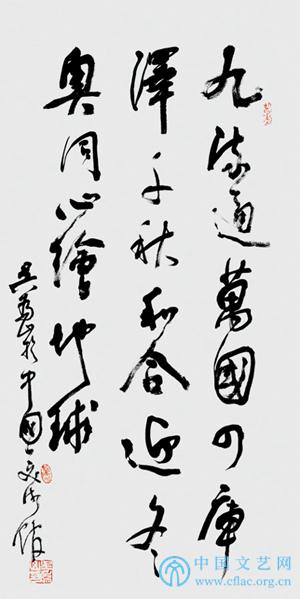 九流通萬國四庫
澤千秋和合迎冬
奥同心繪地球
吴為山於中國美術館
中国文艺网
www.cflac.org.cn